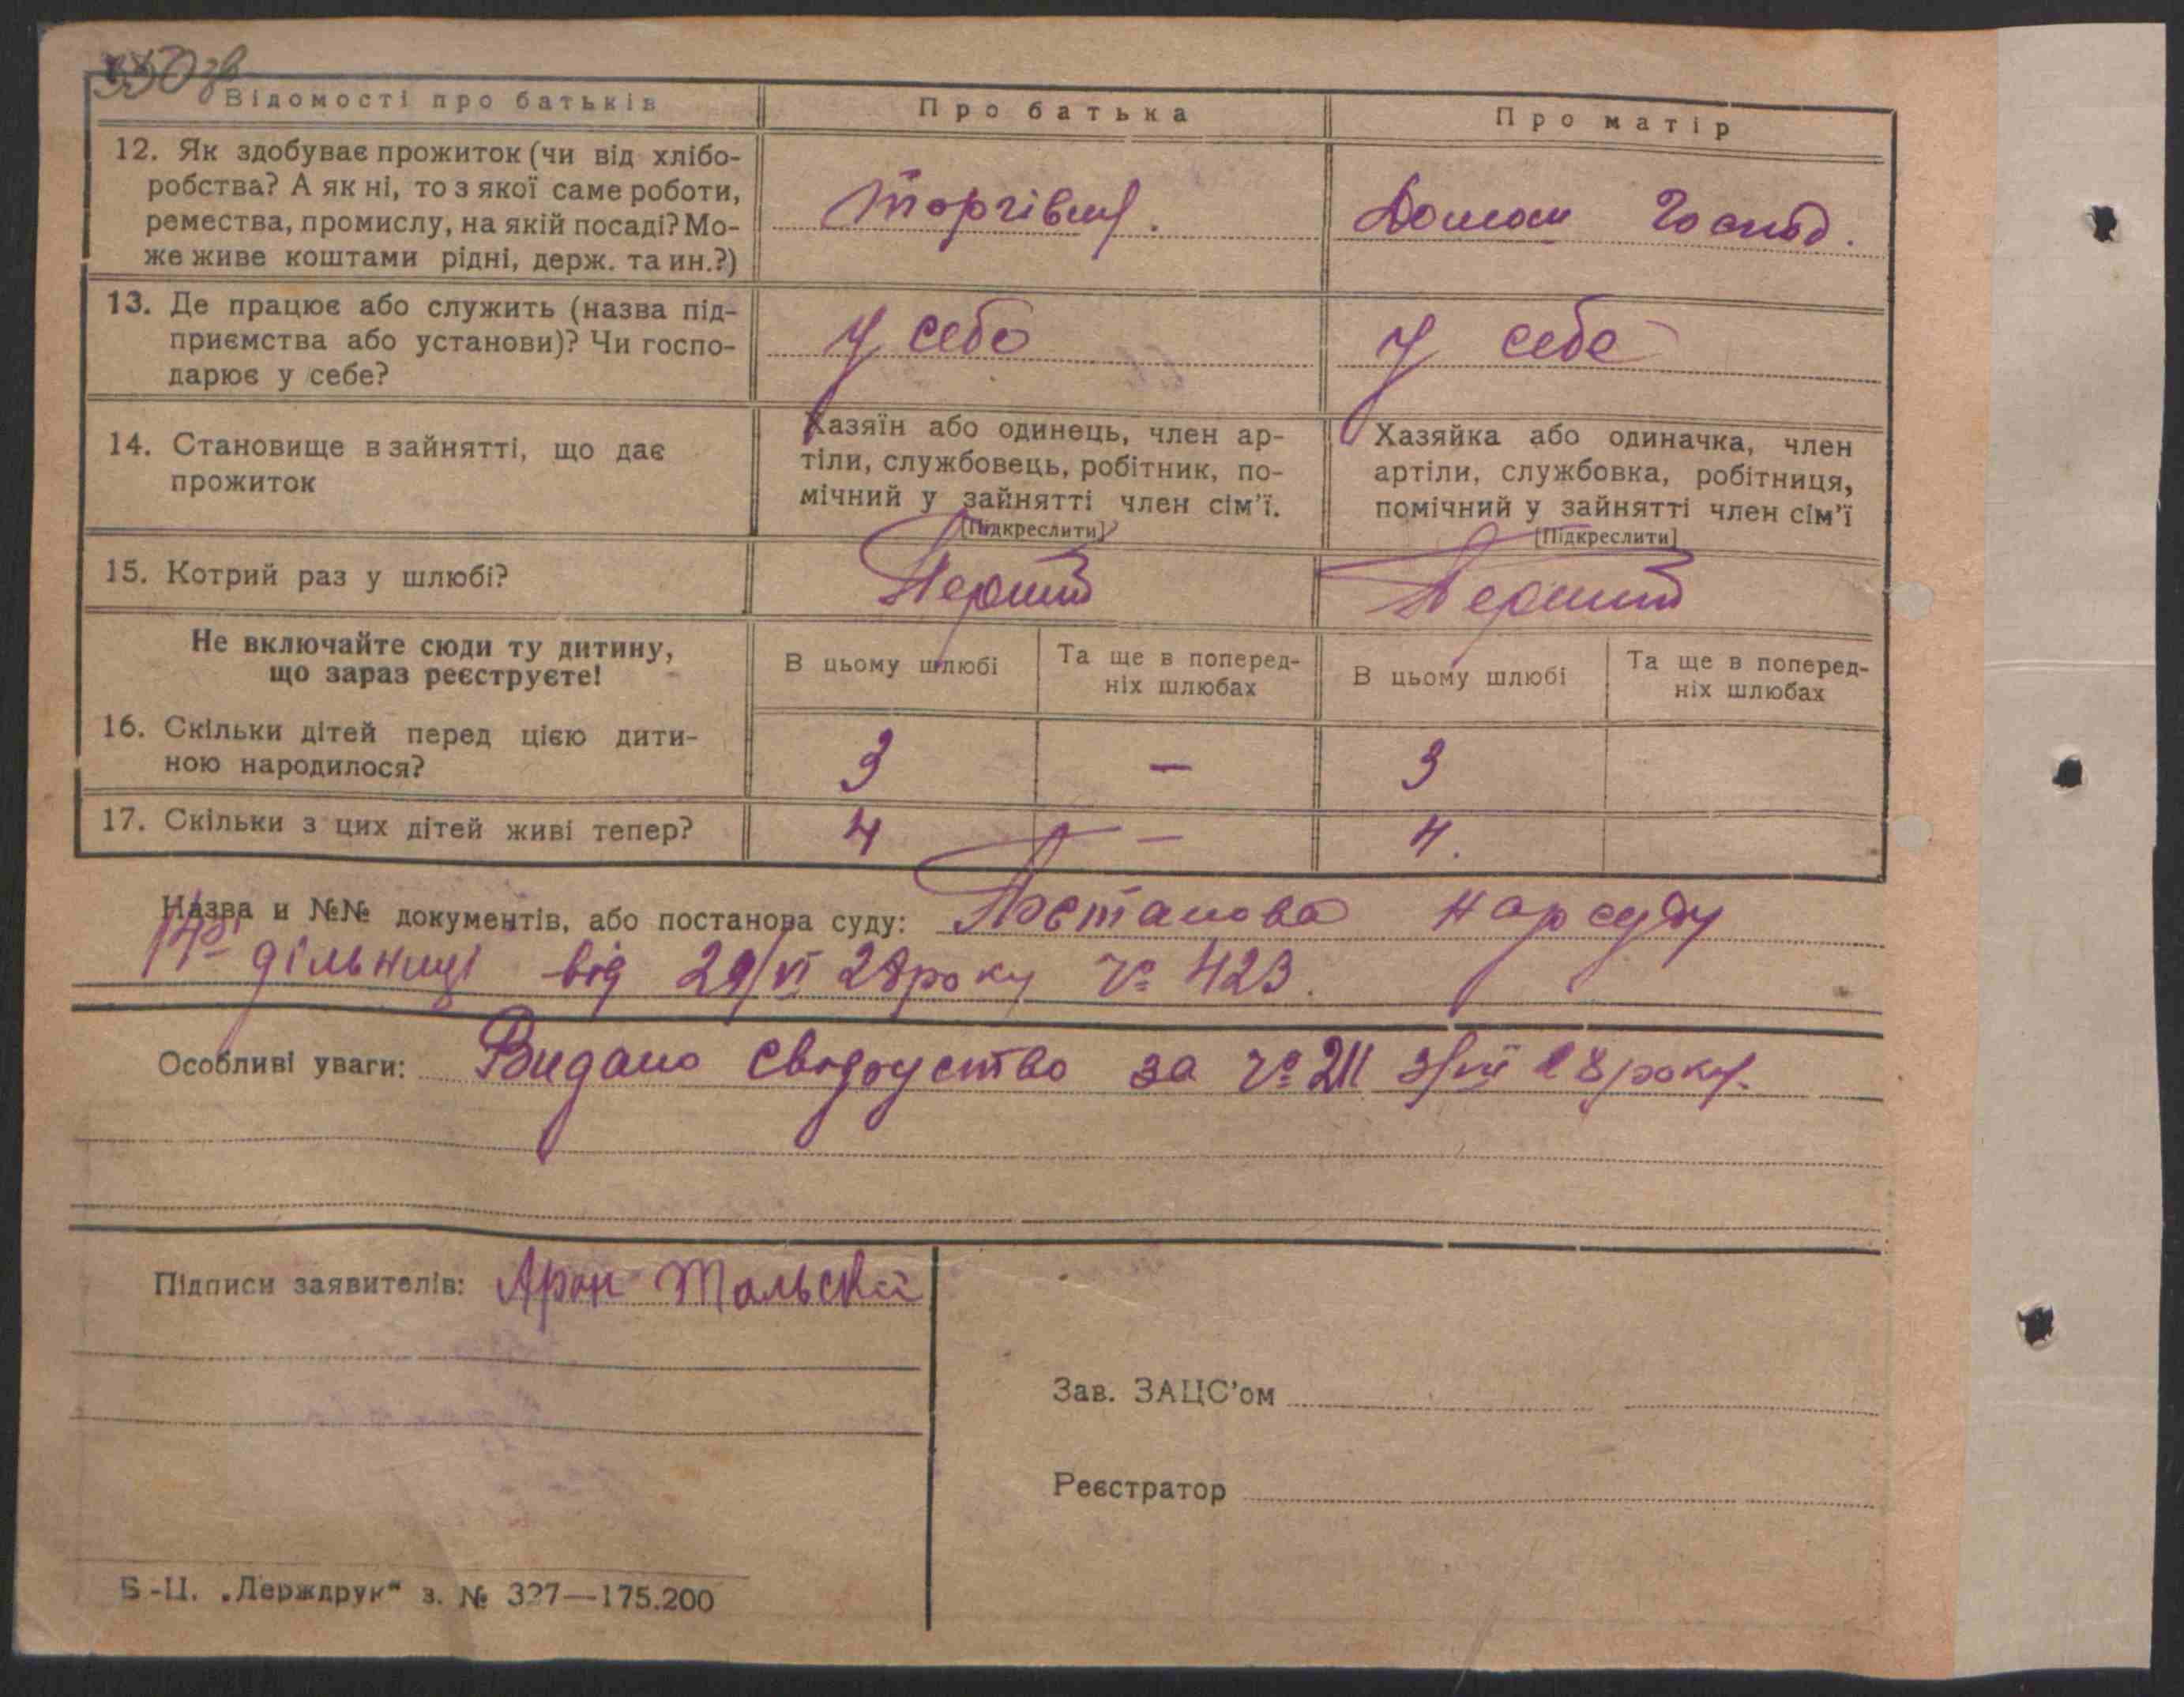 330 зв
Відомості про батьків
Про батька
Про матір
12. Як здобуває прожиток (чи від хлібо-
робства? А як ні, то з якої саме роботи,
ремества, промислу, на якій посаді? Мо-
же живе коштами рідні, держ. та ин.?)
Торгівець.
Домаш Господ.
13. Де працює або служить (назва під-
приємства або установи)? Чи госпо-
дарює у себе?
у себе
у себе
14. Становище в зайнятті, що дає
прожиток
Хазяїн або одинець, член ар-
тіли, службовець, робітник, по-
мічний у зайнятті член сім'ї.
[Підкреслити]
Хазяйка або одиначка, член
артіли, службовка, робітниця,
помічний у зайнятті член сім'ї
[Підкреслити]
15. Котрий раз у шлюбі?
Перший
Перший
Не включайте сюди ту дитину,
що зараз реєструєте!
В цьому шлюбі
Та ще в поперед-
ніх шлюбах
В цьому шлюбі
Та ще в поперед-
ніх шлюбах
16. Скільки дітей перед цією дити-
ною народилося?
3 — 3
17. Скільки з цих дітей живі тепер?
4 — 4.
Назва и №№ документів, або постанова суду: Постанова Нарсуду
дільниці від 29/VI 28 року № 423.
Особливі уваги: Видано свідоцтво за № 211 3/VII 28 року.
Підписи заявителів: Арон Тальский
Зав. ЗАЦС'ом
Реєстратор
Б-Ц. „Держдрук“ з. № 327—175.200